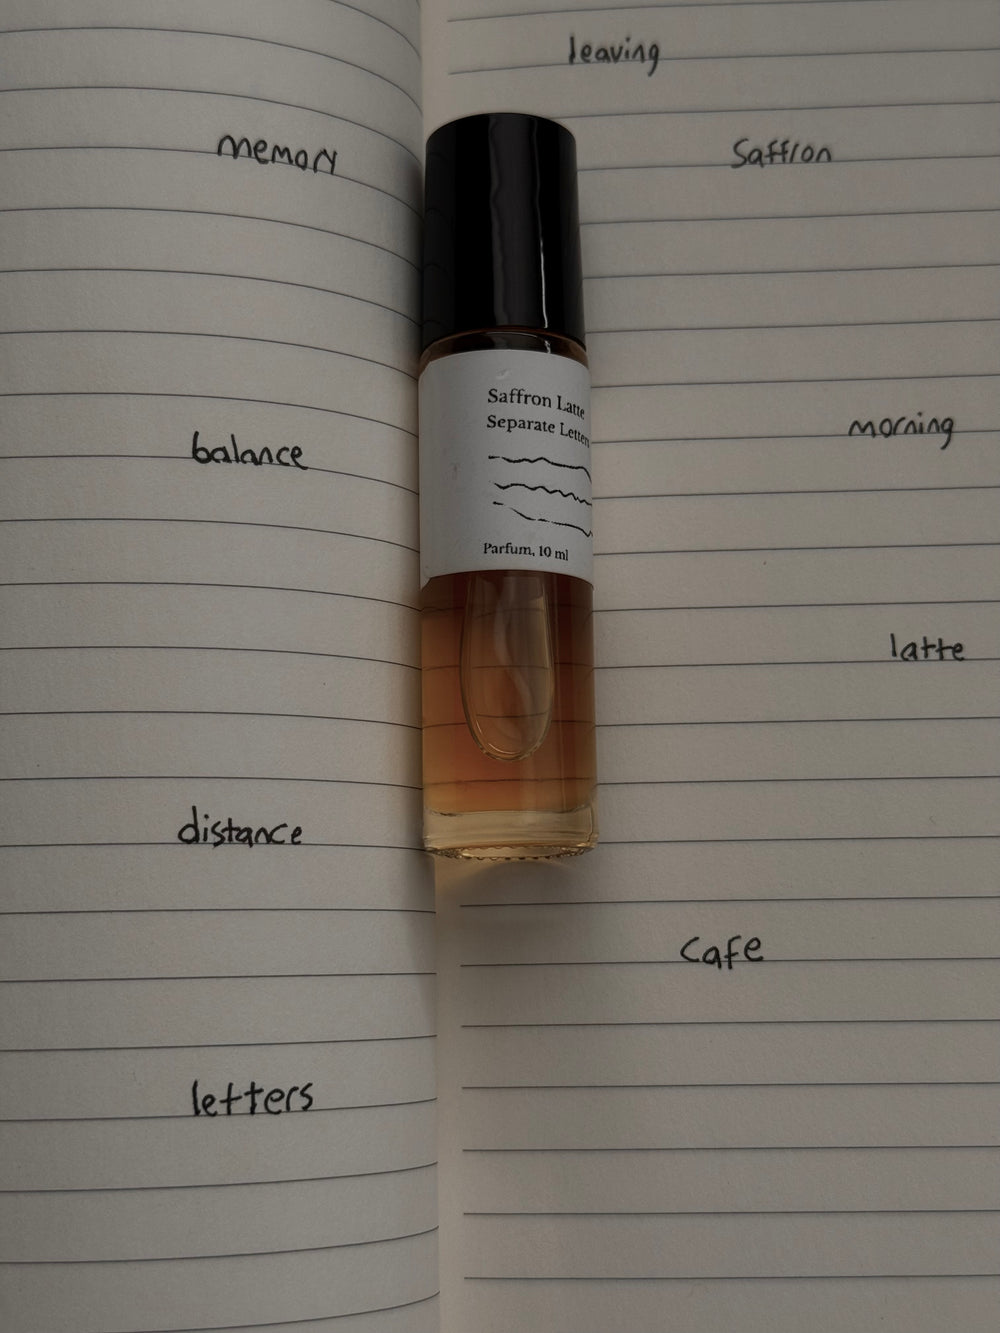 leaving
memory
Saffron
Saffron Latte
Separate Letters
Parfum, 10 ml
morning
balance
latte
distance
Cafe
letters